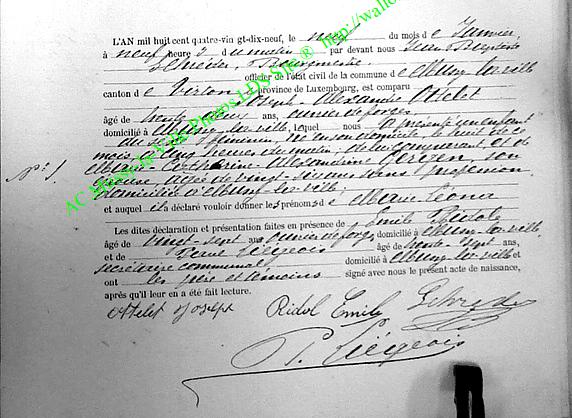 L'AN mil huit cent quatre-vingt-dix-neuf, le neuf du mois de Janvier,
à neuf heures du matin par devant nous Jean Baptiste
Bourgmestre
officier de l'état civil de la commune de Mussy-la-ville
canton de Virton province de Luxembourg, est comparu
Joseph Alexandre Ottelet
âgé de trente ans, ouvrier de forges
domicilié à Mussy-la-ville, lequel nous a présenté un enfant
du sexe féminin, né en son domicile, le huit de ce
mois, à cinq heures du matin, de lui comparant et de
Marie Catherine Alexandrine son
épouse, âgée de vingt-six ans sans profession
domiciliée à Mussy-la-ville;
N° 1.
et auquel il a déclaré vouloir donner les prénoms de Marie Léona
Les dites déclaration et présentation faites en présence de Emile Ridol
âgé de vingt-sept ans ouvrier de forges domicilié à Mussy-la-ville
et de Liégeois âgé de trente-sept ans,
secrétaire communal domicilié à Mussy-la-ville
ont les père et témoins signé avec nous le présent acte de naissance,
après qu'il leur en a été fait lecture.
Ottelet Joseph Ridol Emile
P. Liégeois
AC Mussy-la-Ville Photos LDS Site ® http://wallo